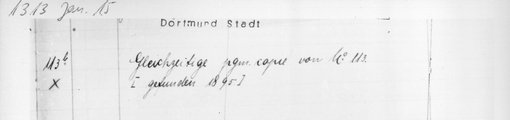 1313 Jan. 15
Dortmund Stadt
113b Gleichzeitige pgm. copie von No 113.
X [ gefunden 1895 ]